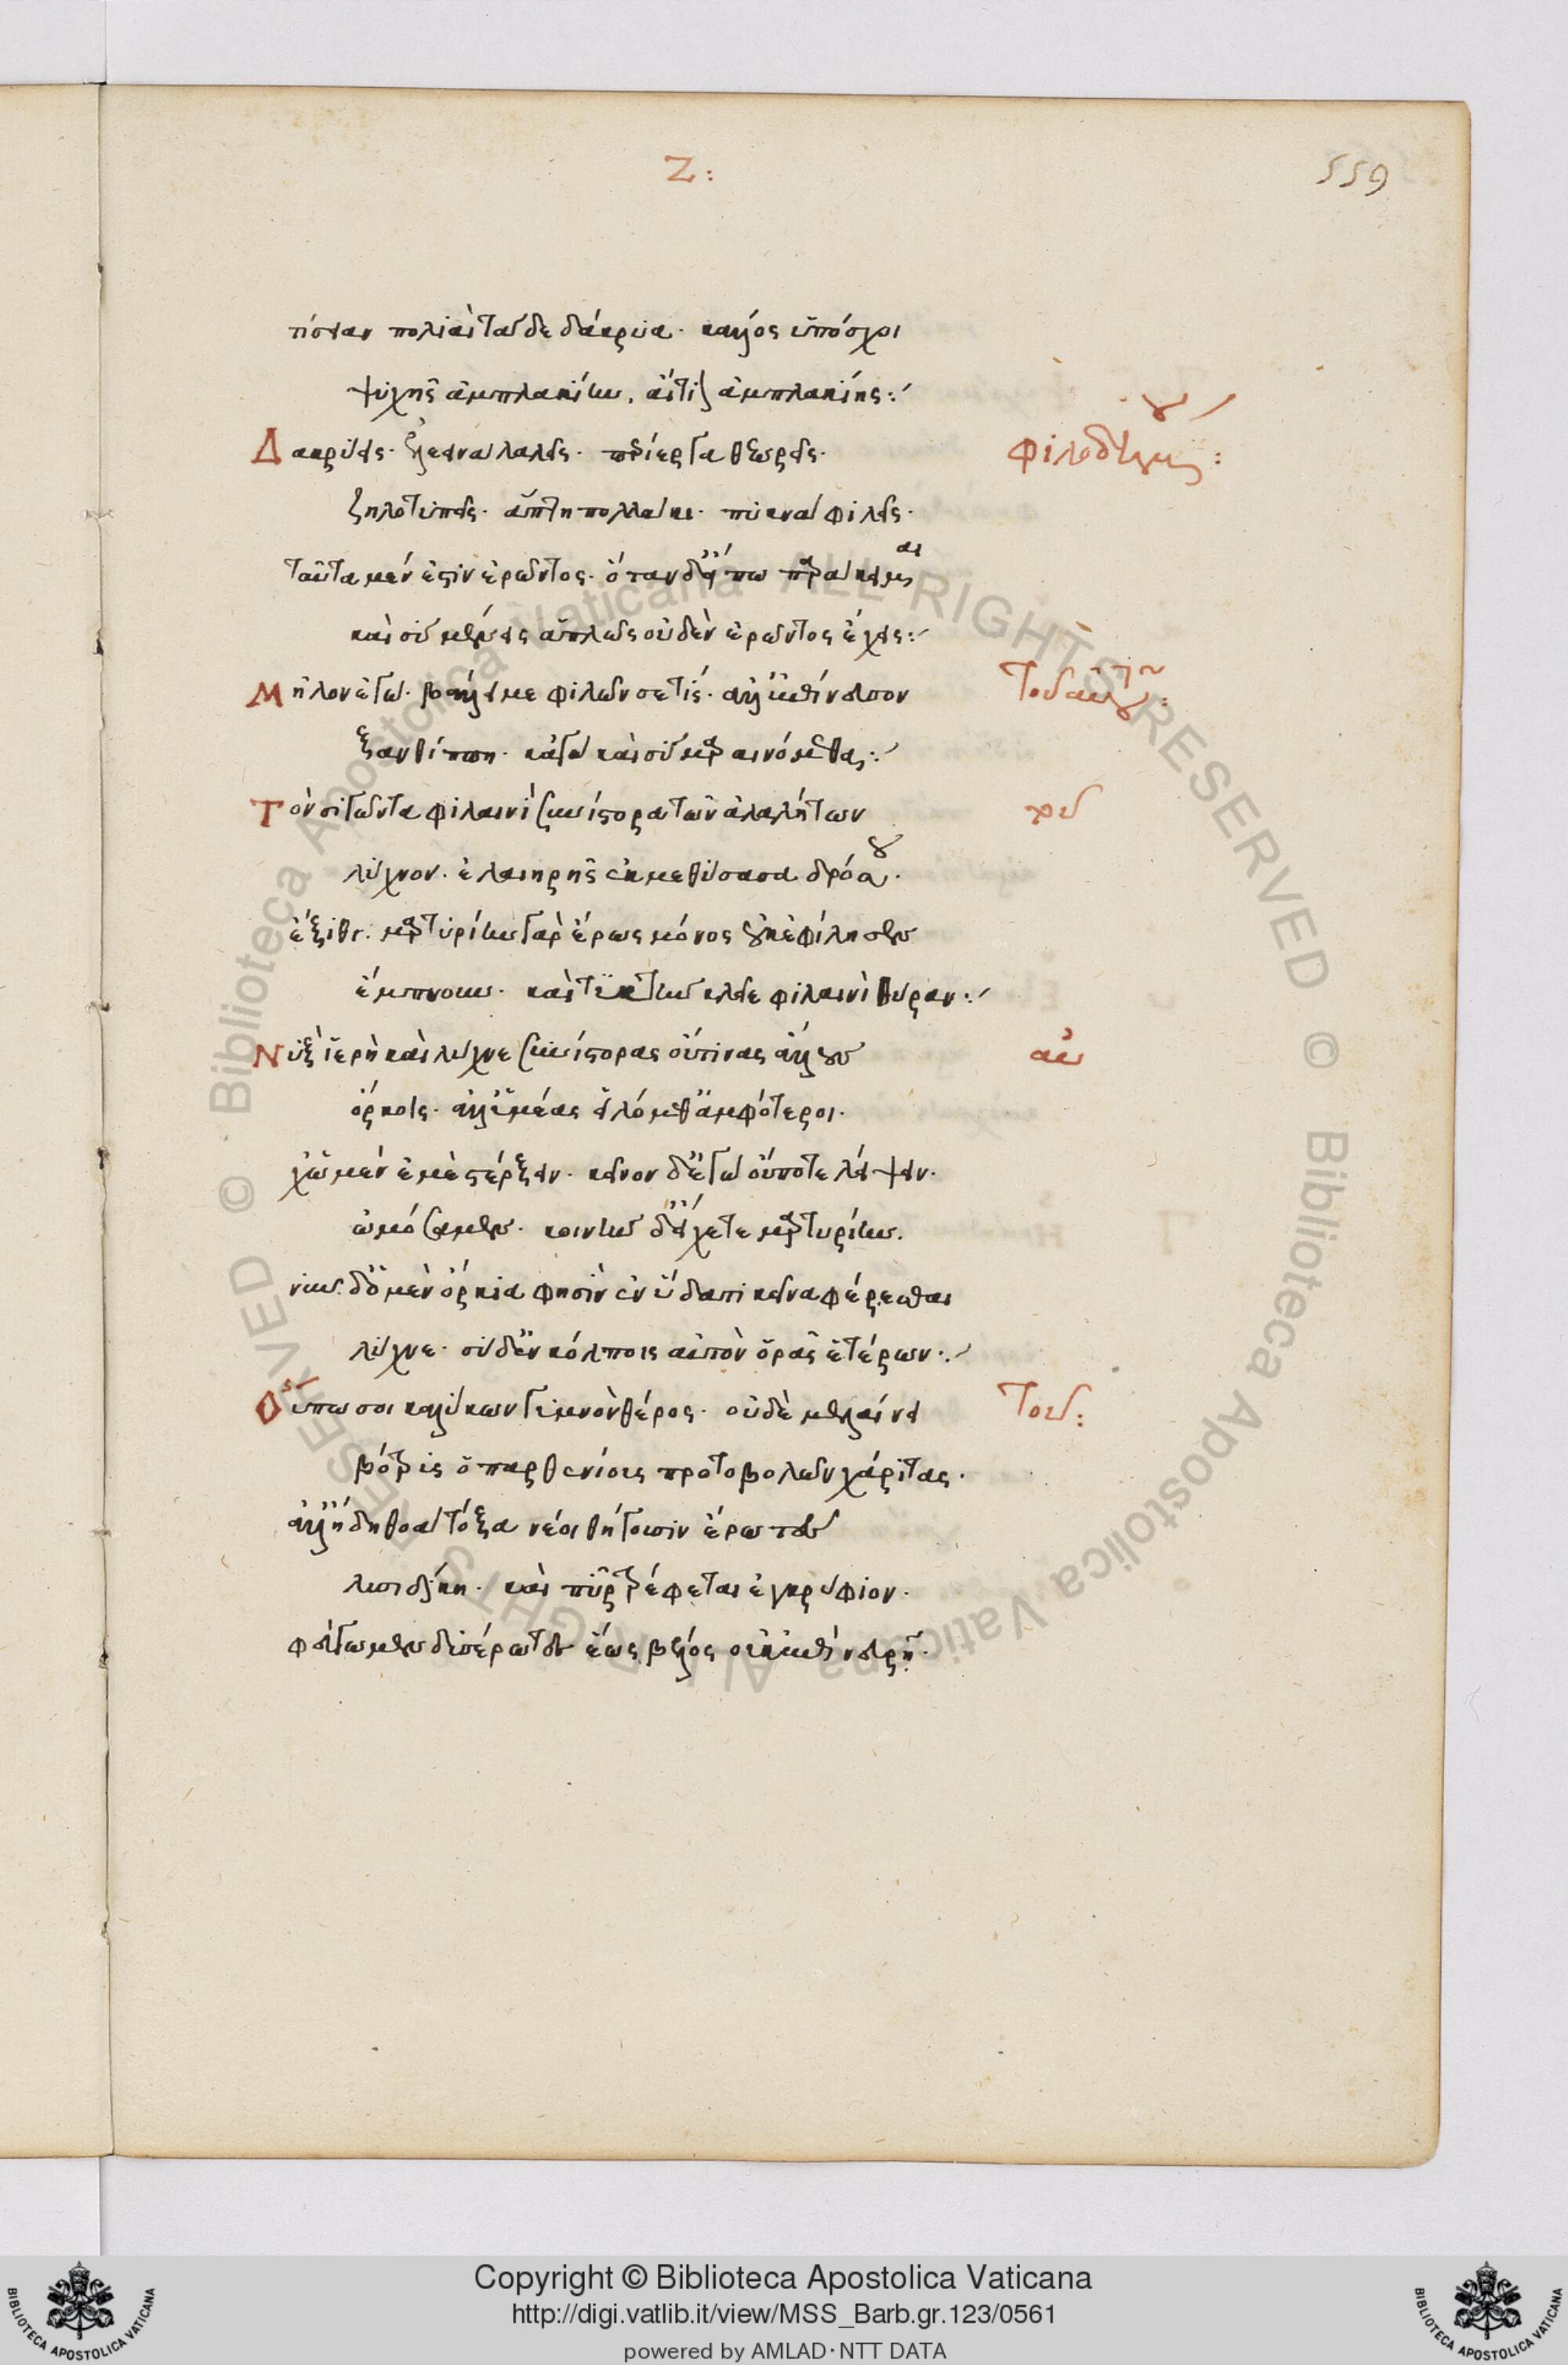 Ζ:
559
πίσταν πολιαὶ τάδε δάκρυα. κάλλος ὑπόσχοι
ψυχῆς ἀμπλακίην, ἀντὶ ἀμπλακίης:
Δακρύεις. ἐλεεινὰ λαλεῖς. περίεργα θεωρεῖς.
Φιλοδήμου:
ζηλοτυπεῖς. ἅπτῃ πολλάκι. πυκνὰ φιλεῖς.
ταῦτα μέν ἐστιν ἐρῶντος. ὅταν δ' εἴπω παράκειμαι
καὶ σὺ μένεις ἁπλῶς οὐδὲν ἐρῶντος ἔχεις:
Μῆλον ἐγώ. βάλλει με φιλῶν σέ τις. ἀλλ' ἐπίνευσον
Τοῦ αὐτοῦ:
ξανθίππη. κἀγὼ καὶ σὺ μαραινόμεθα:
Τὸν σιγῶντα φιλαινὶ συνίστορα τῶν ἀλαλήτων
λύχνον. ἐλαιηρῆς ἐκμεθύσασα δρόσου.
ἔξιθι. μαρτυρίην γὰρ ἔρως μόνος οὐκ ἐφίλησεν
ἔμπνουν. καὶ τυκτὴν κλεῖε φιλαινὶ θύραν:
Νὺξ ἱερὴ καὶ λύχνε συνίστορας οὔτινας ἄλλους
ὅρκοις. ἀλλ' ὑμέας εἱλόμεθ' ἀμφότεροι.
χὠ μὲν ἐμὲ στέρξειν. κεῖνον δ' ἐγὼ οὔποτε λείψειν.
ὠμόσαμεν. κοινὴν δ' εἴχετε μαρτυρίην.
νῦν δ' ὁ μὲν ὅρκιά φησιν ἐν ὕδατι κεῖνα φέρεσθαι
λύχνε. σὺ δ' ἐν κόλποις αὐτὸν ὁρᾷς ἑτέρων:
Οὔπω σοι καλύκων γυμνὸν θέρος. οὐδὲ μελαίνει
Τοῦ:
βότρυς ὁ παρθενίους πρωτοβολῶν χάριτας.
ἀλλ' ἤδη θοὰ τόξα νέοι θήγουσιν ἔρωτες
λυσιδίκη. καὶ πῦρ τρέφεται ἐγκρύφιον.
φεύγωμεν δυσέρωτες ἕως βέλος οὐκ ἐπὶ νευρῇ.
Copyright © Biblioteca Apostolica Vaticana
http://digi.vatlib.it/view/MSS_Barb.gr.123/0561
powered by AMLAD·NTT DATA
BIBLIOTECA APOSTOLICA VATICANA
BIBLIOTECA APOSTOLICA VATICANA
© Biblioteca Apostolica Vaticana ALL RIGHTS RESERVED